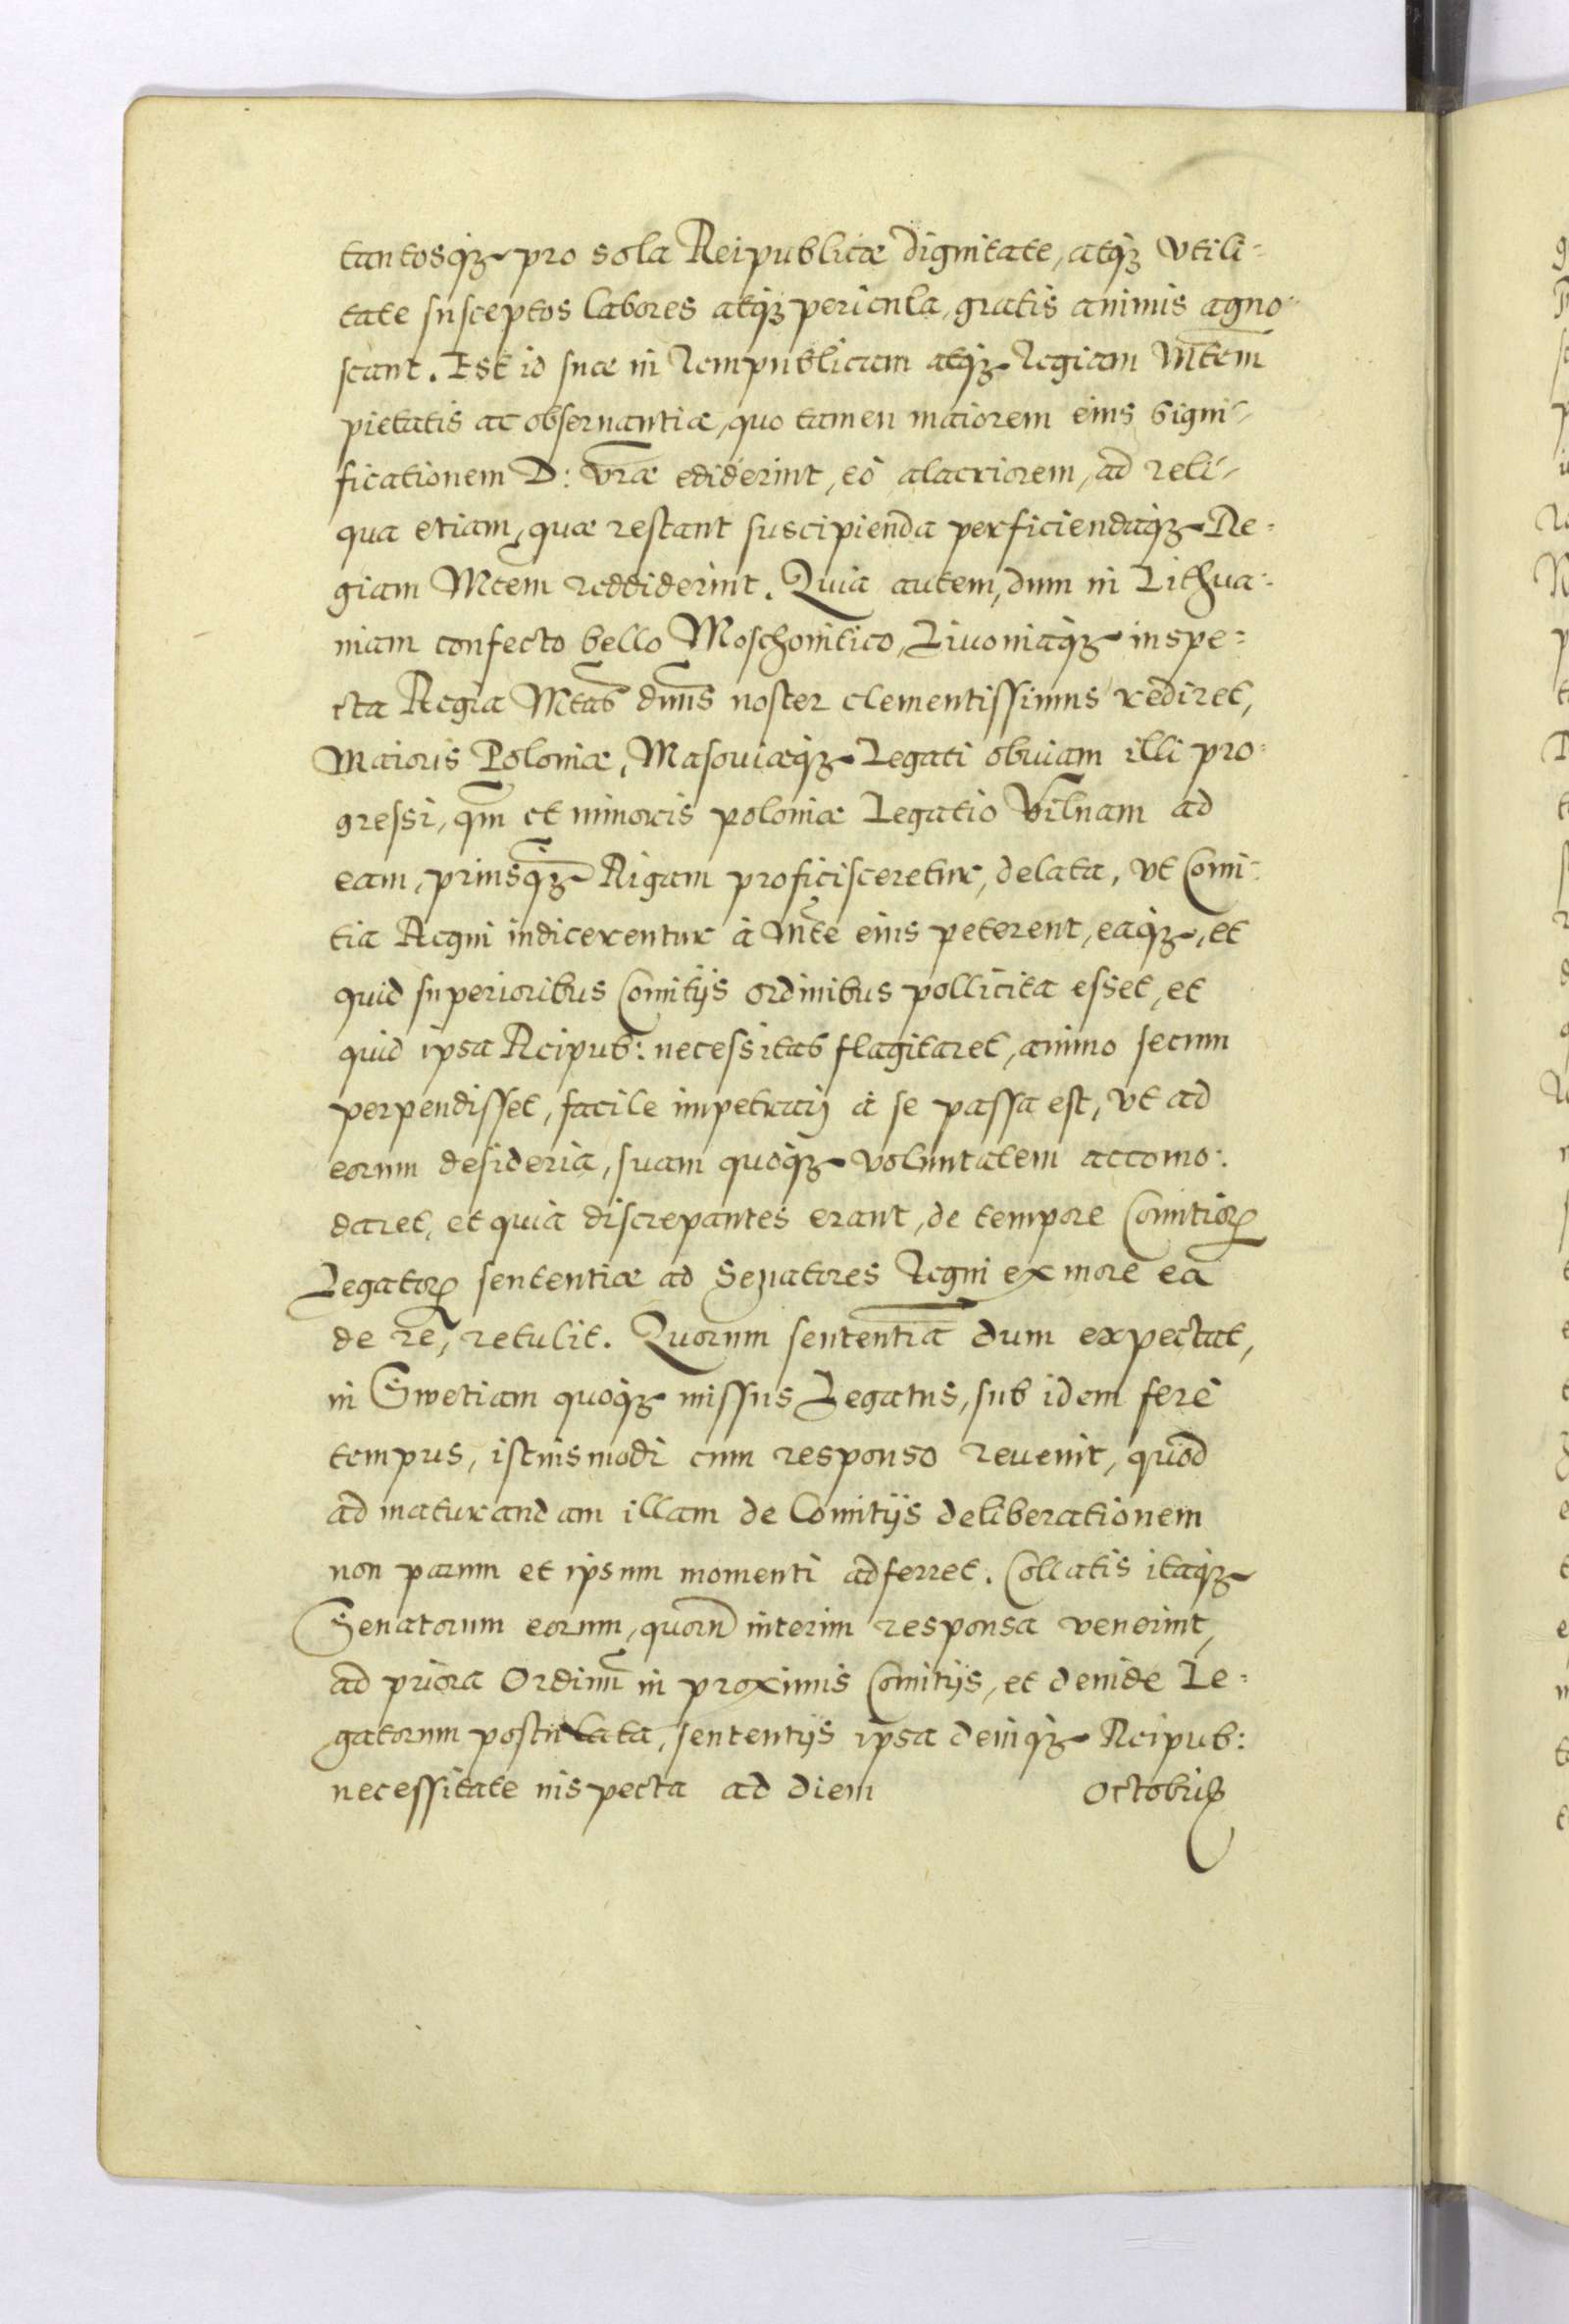 tantosq₃ pro sola Reipublicæ dignitate, atq₃ vtili=
tate susceptos labores atq₃ pericula, gratis animis agno=
scant. Est id suæ in Rempublicam atq₃ Regiam Mtem
pietatis ac obseruantiæ, quo tamen maiorem eius signi=
ficationem D: vræ ediderint, eò alacriorem, ad reli=
qua etiam, quæ restant suscipienda perficiendaq₃ Re=
giam Mtem reddiderint. Quia autem, dum in Lithua=
niam confecto bello Moschouitico, Liuoniaq₃ inspe=
cta Regia Mtas dnus noster clementissimus rediret,
Maioris Poloniæ, Masouiæq₃ Legati obuiam illi pro=
gressi, qm et minoris poloniæ Legatio Vilnam ad
eam, priusq₃ Rigam proficisceretur, delata, vt Comi=
tia Regni indicerentur à Mte eius peterent, eaq₃, et
quid superioribus Comitijs ordinibus pollicita esset, et
quid ipsa Reipub: necessitas flagitaret, animo secum
perpendisset, facile impetrarj à se passa est, vt ad
eorum desideria, suam quoq₃ voluntatem accomo=
daret, et quia discrepantes erant, de tempore Comitioꝝ
Legatoꝝ sententiæ ad Senatores Regni ex more ea
de re, retulit. Quorum sententia dum expectat,
in Swetiam quoq₃ missus Legatus, sub idem ferè
tempus, istiusmodi cum responso reuenit, quod
ad maturandam illam de Comitijs deliberationem
non parum et ipsum momenti adferret. Collatis itaq₃
Senatorum eorum, quoru interim responsa venerint,
ad priora Ordinu in proximis Comitijs, et deinde Le=
gatorum postulata, sententijs ipsa deniq₃ Reipub:
necessitate inspecta ad diem Octobris